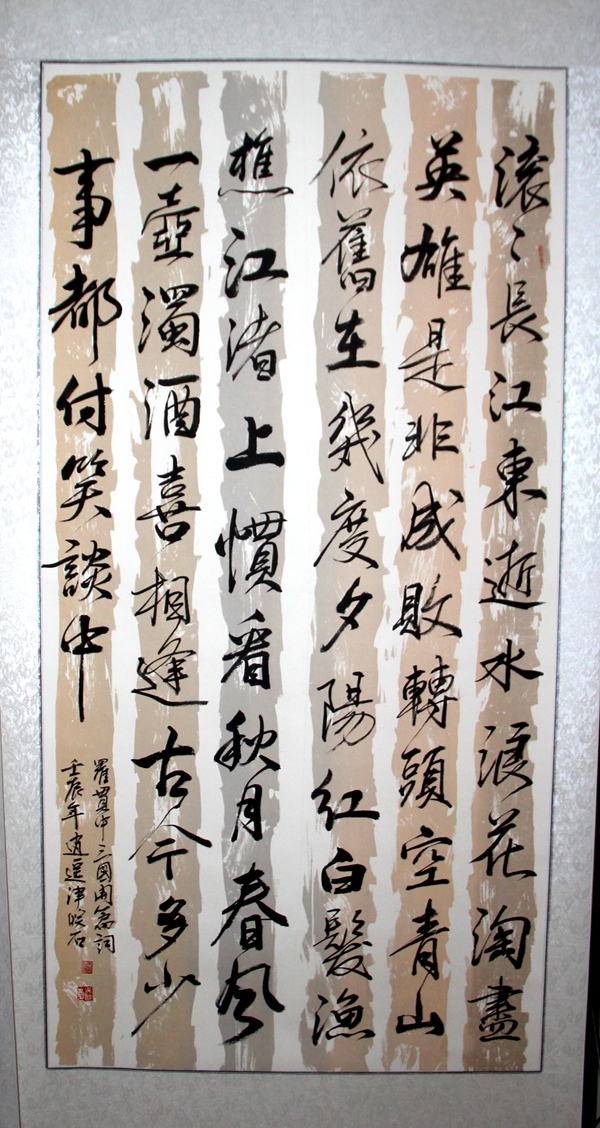 滚〻長江東逝水浪花淘盡
英雄是非成敗轉頭空青山
依舊在幾度夕陽紅白髮漁
樵江渚上慣看秋月春風
一壺濁酒喜相逢古今多少
事都付笑談中
羅貫中三國開篇詞
壬辰年逍遥津